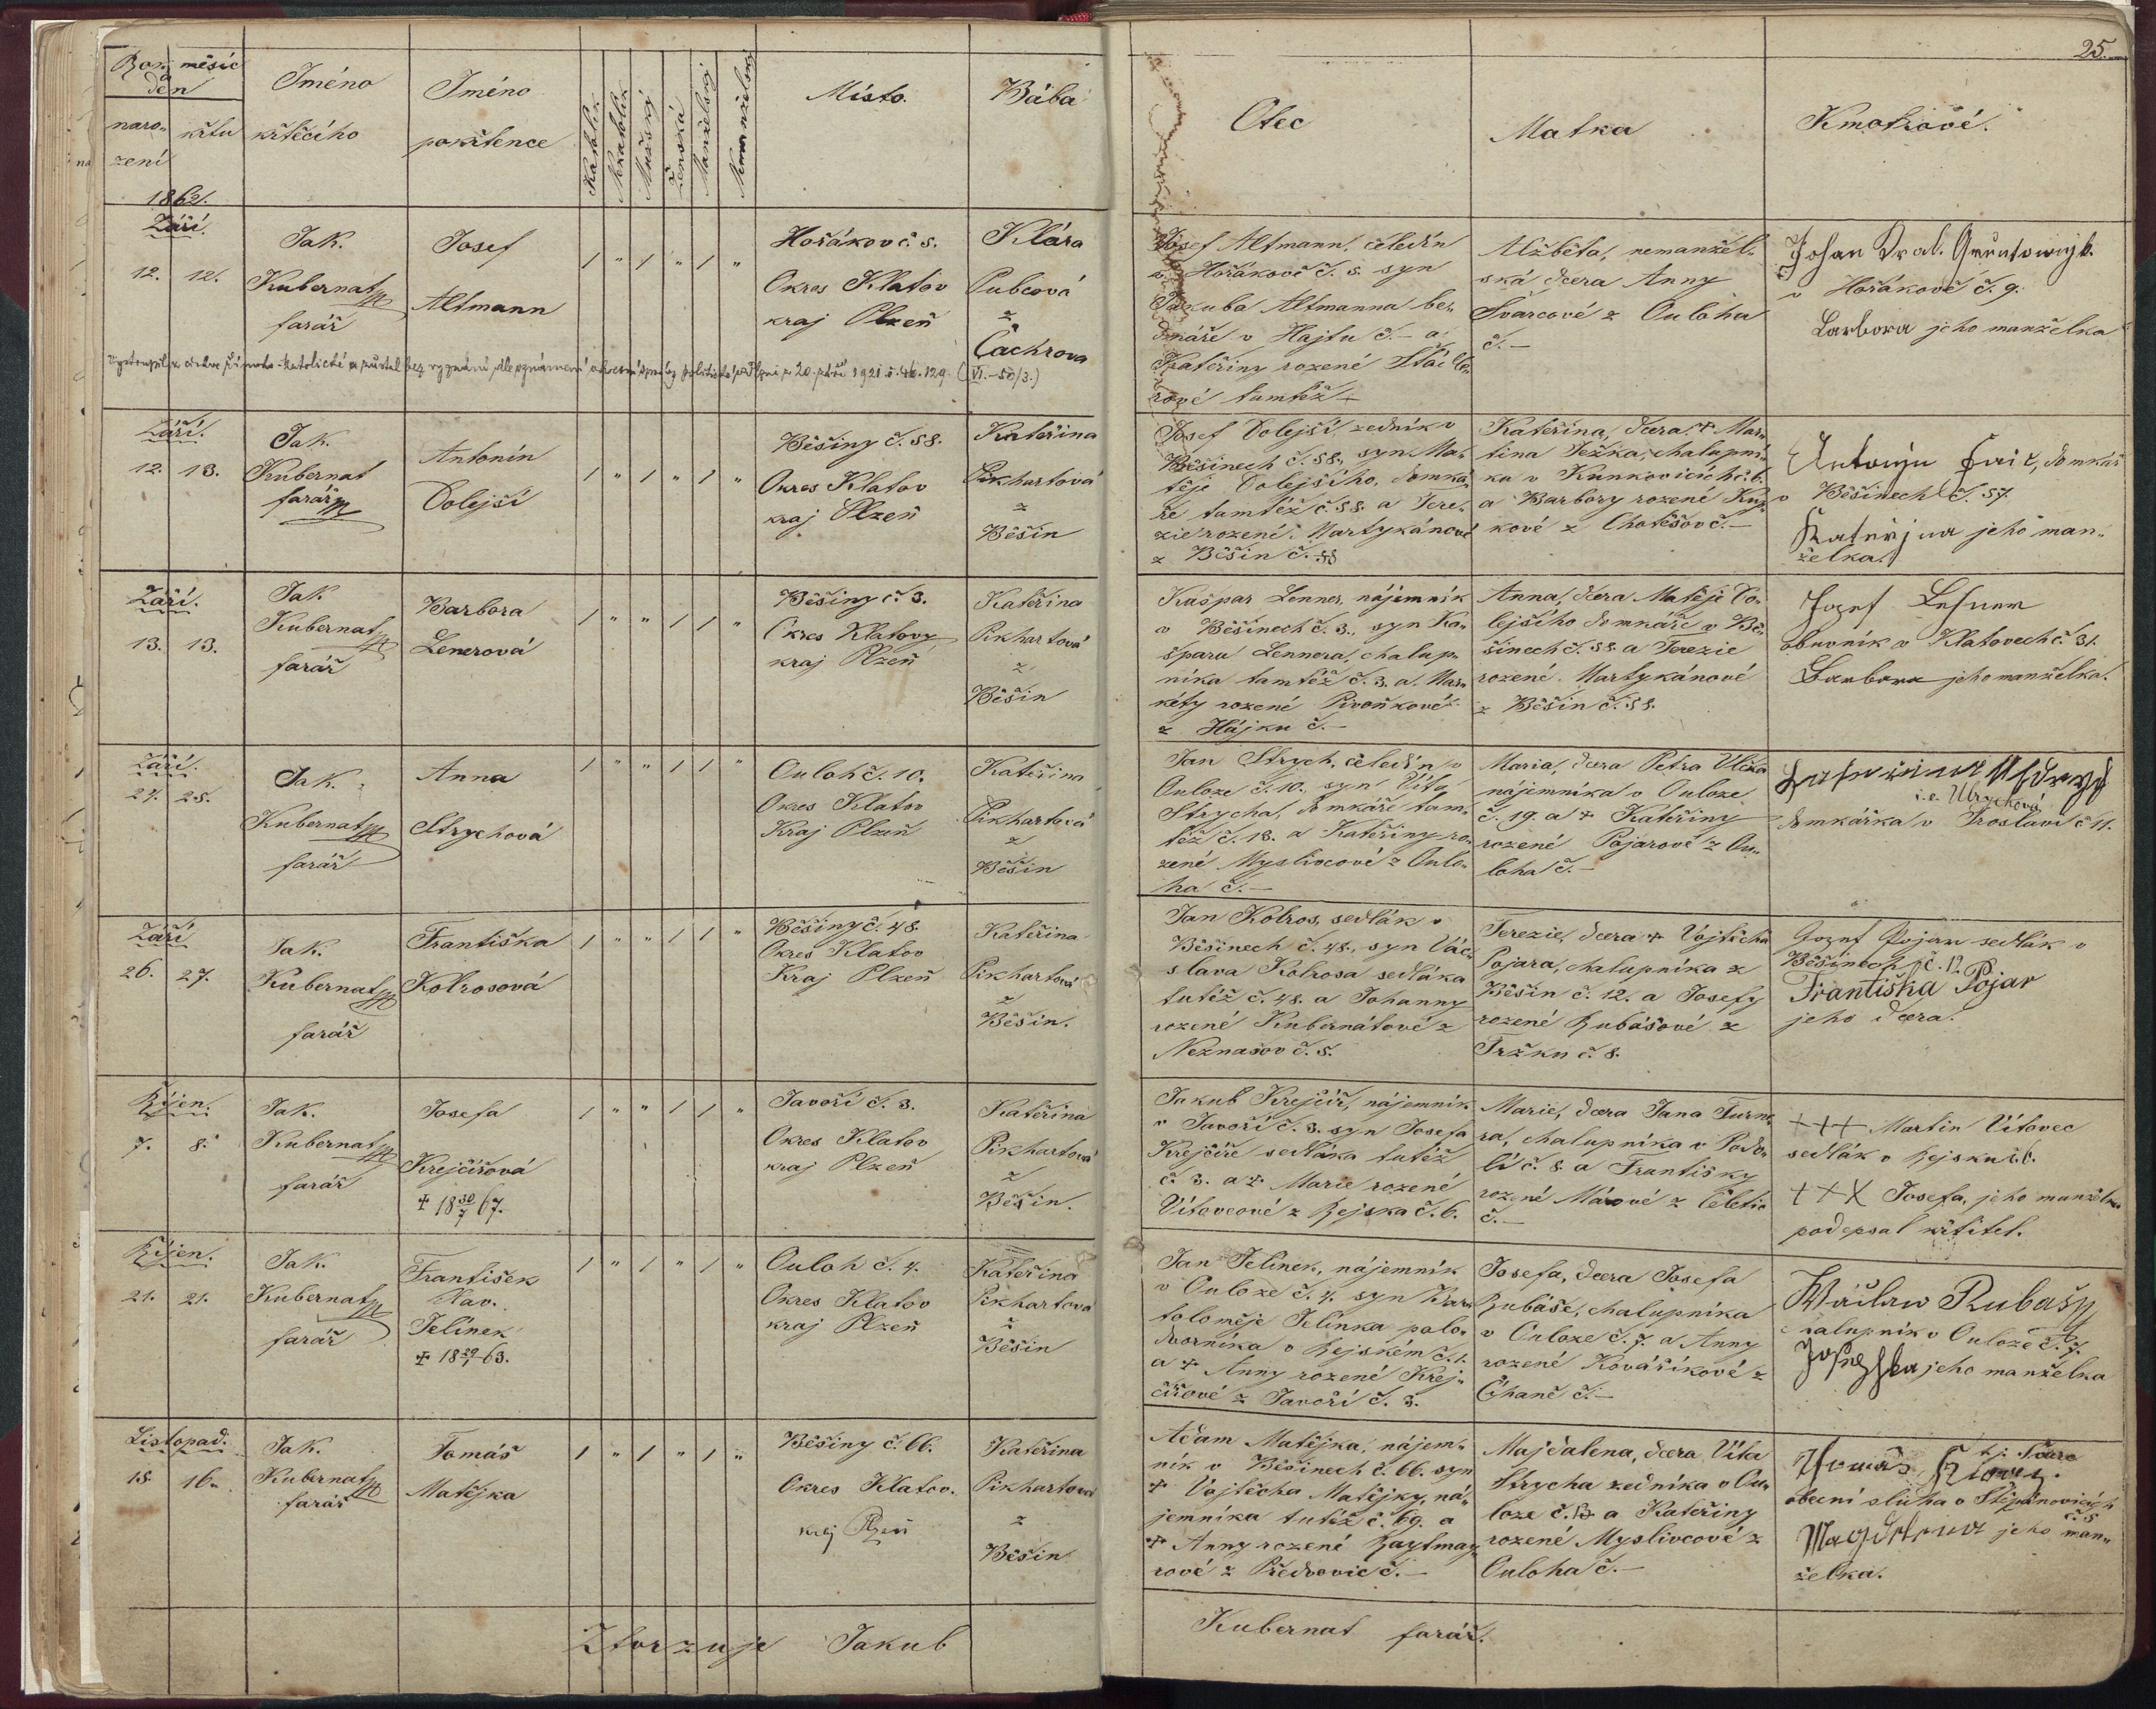 25.
Rok, měsíc
a
den
naro-
zení
křtu
Jméno
křtěcího
Jméno
pokřtence
Katolík
Nekatolík
Mužský
Ženská
Manželský
Nemanželský
Místo.
Bába
Otec
Matka
Kmotrové.
1862.
Září.
12. 12.
Jak.
Kubernat
farář
Josef
Altmann
/ " / " / "
Hořákov č. 5.
Okres Klatov
kraj Plzeň
Klára
Pubcová
z
Čachrova
Josef Altmann, čeledín
v Hořákově č. 5. syn
Jakuba Altmanna be-
dnáře v Hajtu č. – a
Kateřiny rozené
rové tamtéž –
Alžběta, nemanžel-
ská dcera Anny
Švarcové z Ouloha
č. –
Johan Kral. Gruntownjk.
v Hořákově č. 9.
Barbora jeho manželka
Vystoupil z církve římsko-katolické a zůstal bez vyznání, dle oznámení okresní správy politické 20. září 1921 č. 46.129. (VI.–50/3.)
Září.
12. 13.
Jak.
Kubernat
farář
Antonín
Dolejší
/ " / " / "
Běšiny č. 58.
Okres Klatov
kraj Plzeň
Kateřina
Pikhartová
z
Běšin
Josef Dolejší zedník v
Běšinech č. 58., syn Ma-
těje Dolejšího, domká-
ře tamtéž č. 58. a Tere-
zie rozené Martykánové
z Běšin č. 58
Kateřina, dcera ✝ Mar-
tina Ježka, chalupní-
ka v Kunkovicích č. 6.
a Barbory rozené
kové z Chotěšov č. –
Antonjn domkář
v Běšinech č. 57.
Kateřjna jeho man-
želka.
Září.
13. 13.
Jak
Kubernat
farář
Barbora
Lenerová
/ " " / / "
Běšiny č. 3.
Okres Klatovy
kraj Plzeň
Kateřina
Pikhartová
z
Běšin
Kašpar Lenner, nájemník
v Běšinech č. 3., syn Ka-
špara Lennera, chalup-
níka tamtéž č. 3. a Mar-
kéty rozené Pivoňkové
z Hájku č. –
Anna, dcera Matěje Do-
lejšího domkáře v Bě-
šinech č. 58 a Terezie
rozené Martykánové
z Běšin č. 58.
Jozef
obuvník v Klatovech č. 31.
Barbora jeho manželka.
Září.
24. 25.
Jak.
Kubernat
farář
Anna
Strychová
/ " " / / "
Ouloh č. 10.
Okres Klatov
Kraj Plzeň
Kateřina
Pikhartová
z
Běšin
Jan Strych, čeledín v
Ouloze č. 10., syn Víta
Strycha, domkáře tam-
též č. 13. a Kateřiny ro-
zené Myslivcové z Oulo-
ha č. –
Maria, dcera Petra Ulčka
nájemníka v Ouloze
č. 19. a ✝ Kateřiny
rozené Pojarové z Ou-
loha č. –
i.e. Ulrychová
domkářka v Jroslavi č 11.
Září
26. 27.
Jak.
Kubernat
farář
Františka
Kolrosová
/ " " / / "
Běšiny č. 48.
Okres Klatov
Kraj Plzeň
Kateřina
Pikhartová
z
Běšin.
Jan Kolros, sedlák v
Běšinech č. 48., syn Vác-
slava Kolrosa sedláka
tutéž č. 48. a Johanny
rozené Kubernátové z
Neznašov č. 5.
Terezie, dcera ✝ Vojtěcha
Pojara, chalupníka z
Běšin č. 12. a Josefy
rozené Rubášové z
Tržku č. 8.
Jozef Pojar sedlák v
Běšinech č. 12.
Františka Pojar
jeho dcera.
Říjen.
7. 8.
Jak.
Kubernat
farář
Josefa
Krejčířová
✝ 18 30/7 67.
/ " " / / "
Javoří č. 3.
Okres Klatov
kraj Plzeň
Kateřina
Pikhartová
z
Běšin.
Jakub Krejčíř, nájemník
v Javoří č. 3. syn Josefa
Krejčíře sedláka tutéž
č. 3. a ✝ Marie rozené
Vítovcové z Rejska č. 6.
Marie, dcera Jana Turne-
ra, chalupníka v Podo-
lí č. 8 a Františky
rozené Márové z Čeletic
č. –
+++ Martin Vítovec
sedlák v Rejsku č. 6.
+++ Josefa, jeho manželka
podepsal křtitel.
Říjen.
21. 21.
Jak.
Kubernat
farář
František
Xav.
Jelínek
✝ 18 29/1 63.
/ " / " / "
Ouloh č. 4.
Okres Klatov
kraj Plzeň
Kateřina
Pikhartová
z
Běšin
Jan Jelínek, nájemník
v Ouloze č. 4. syn Bar-
toloměje Jelínka polo-
dvorníka v Rejském č. 1.
a ✝ Anny rozené Krej-
čířové z Javoří č. 3.
Josefa, dcera Josefa
Rubáše, chalupníka
v Ouloze č. 7. a Anny
rozené Kováříkové z
Číhaně č. –
Wáclaw Rubašy
chalupník v Ouloze č. 7.
Josefka jeho manželka
Listopad.
15. 16.
Jak.
Kubernat
farář
Tomáš
Matějka
/ " / " / "
Běšiny č. 66.
Okres Klatov.
kraj Plzeň
Kateřina
Pikhartová
z
Běšin
Adam Matějka, nájem-
ník v Běšinech č. 66. syn
✝ Vojtěcha Matějky, ná-
jemníka tutéž č. 69. a
✝ Anny rozené Raytmay-
rové z Předvovic č. –
Majdalena, dcera Víta
Strycha zedníka v Ou-
loze č. 13 a Kateřiny
rozené Myslivcové z
Ouloha č. –
Thomáš
obecní sluha v Štěpánovicích
č 5
Magdalena jeho man-
želka.
Ztvrzuje Jakub
Kubernat farář.